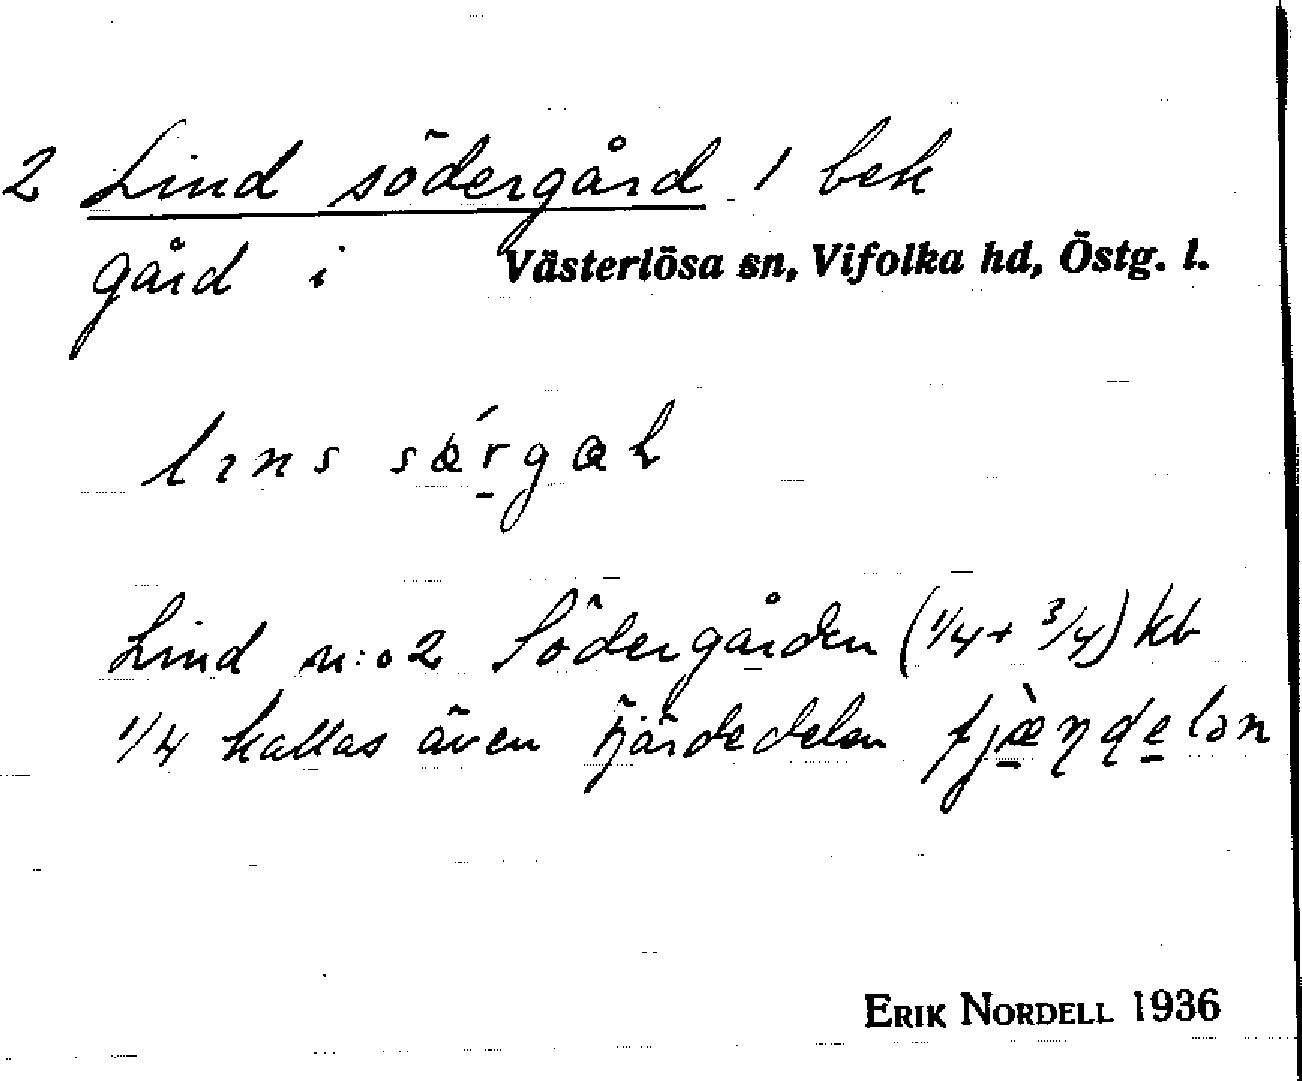 2 Lind södergård / bek
gård i Västerlösa sn, Vifolka hd, Östg. l.
Lind n:o 2 Södergården (1/4 + 3/4) kb
1/4 kallas även fjärdedelen
ERIK NORDELL 1936